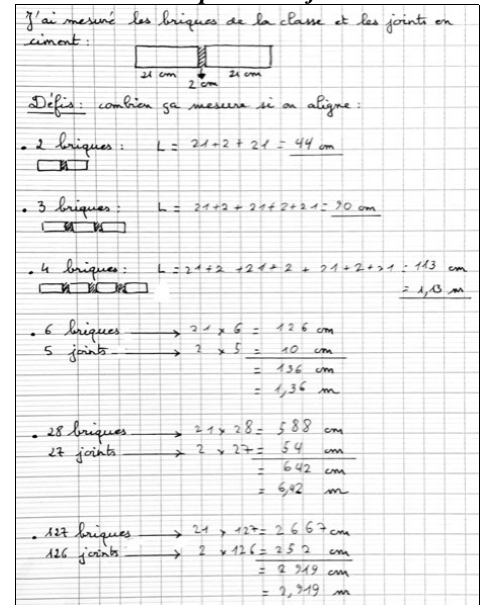 J'ai mesuré les briques de la classe et les joints en
ciment :
21 cm 21 cm
2 cm
Défis : combien ça mesure si on aligne :
. 2 briques : L = 21+2+21 = 44 cm
. 3 briques : L = 21+2+21+2+21 = 90 cm
. 4 briques : L = 21+2+21+2+21+2+21 = 113 cm
= 1,13 m
. 6 briques → 21 × 6 = 126 cm
5 joints → 2 × 5 = 10 cm
= 136 cm
= 1,36 m
. 28 briques → 21 × 28 = 588 cm
27 joints → 2 × 27 = 54 cm
= 642 cm
= 6,42 m
. 127 briques → 21 × 127 = 2667 cm
126 joints → 2 × 126 = 252 cm
= 2919 cm
= 2,919 m